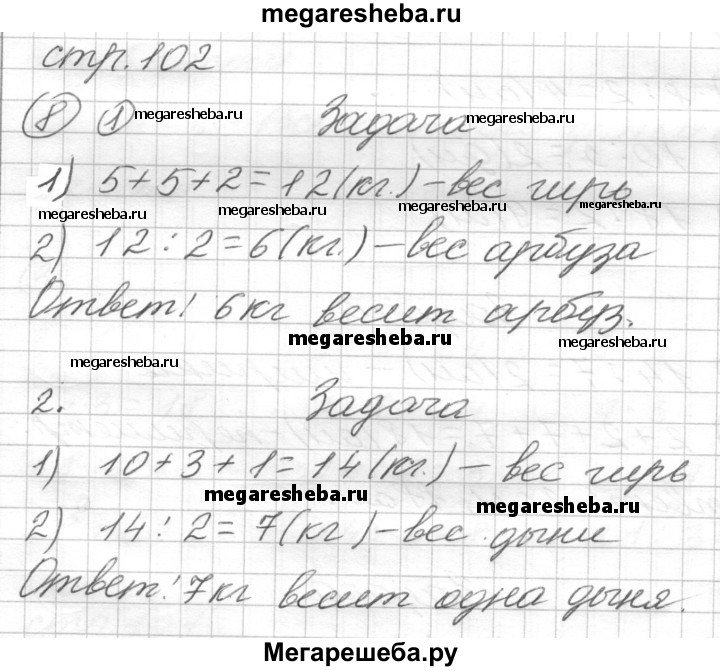 megaresheba.ru
стр. 102
8 1 megaresheba.ru Задача megaresheba.ru
1) 5+5+2=12(кг.) – вес гирь
megaresheba.ru megaresheba.ru megaresheba.ru megaresheba.ru
2) 12:2=6(кг.) – вес арбуза
Ответ: 6кг весит арбуз.
megaresheba.ru megaresheba.ru
megaresheba.ru
2. Задача
1) 10+3+1=14(кг.) – вес гирь
megaresheba.ru megaresheba.ru
2) 14:2=7(кг) – вес дыни
Ответ: 7кг весит одна дыня.
Мегарешеба.ру